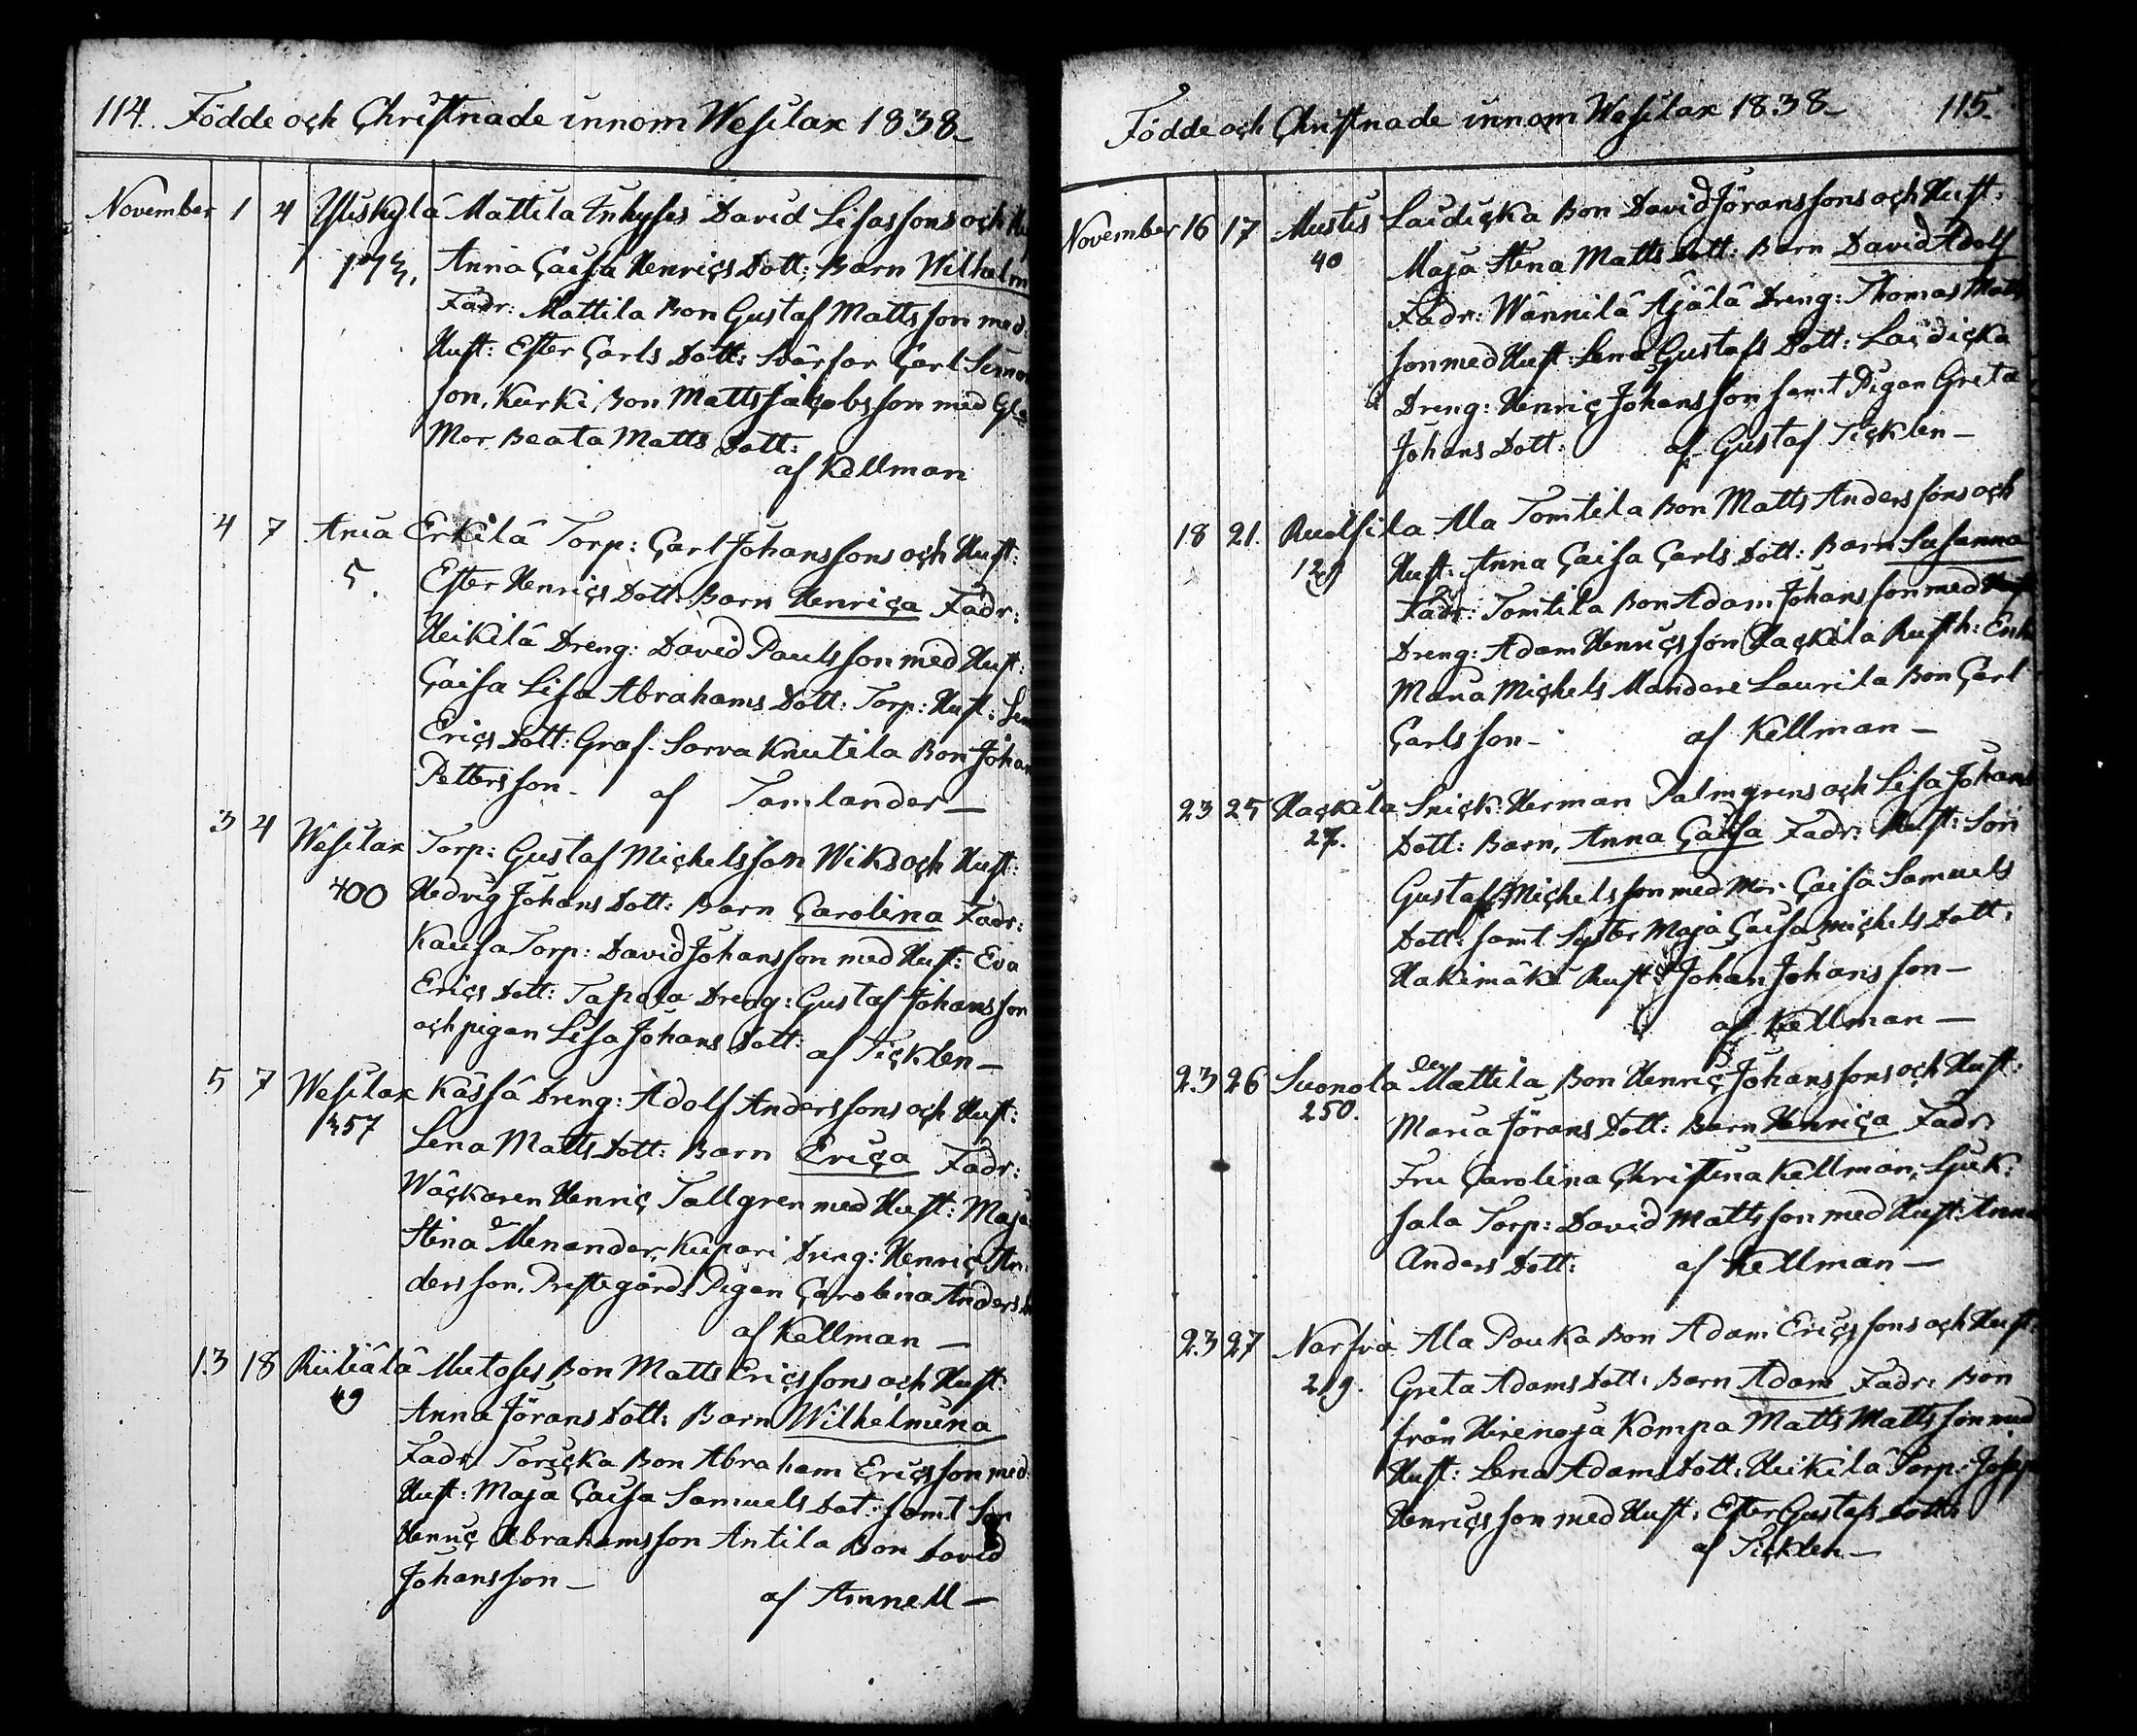 114. Födde och Christnade innom Wesilax 1838
November 1 4 Yliskylä Mattila Inhyses David Lisassons och
173. Anna Caisa Henrics Dott: Barn Wilhelm
Fadr: Mattila Bon Gustaf Mattsson med
Hust: Ester Carls Dott: Svärfar Carl Simon
son, Kurki Bon Matts Jacobsson med
Mor Beata Matts Dott:
af Kellman
4 7 Ania Erkilä Torp: Carl Johanssons och Hust:
5. Ester Henrics Dott: Barn Henrica Fadr:
Heikilä Dreng: David Paulsson med Hust:
Caisa Lisa Abrahams Dott: Torp: Hust:
Erics Dott: Graf. Sorva Knutila Bon Johan
Pettersson. af Tamlander
3 4 Wesilax Torp: Gustaf Michelsson Wiks och Hust:
400 Hedvig Johans Dott: Barn Carolina Fadr:
Kaisa Torp: David Johansson med Hust: Eva
Erics Dott: Tapola Dreng: Gustaf Johansson
och pigan Lisa Johans Dott: af Ticklen
5 7 Wesilax Kässä Dreng: Adolf Anderssons och Hust:
357 Lena Matts Dott: Barn Erica Fadr:
Wäckaren Henric Tallgren med Hust: Maja
Stina Menander, Kupari Dreng: Henric An
dersson, Prestegårds Pigan Carolina Anders
af Kellman
13 18 Riiliälä Mutoses Bon Matts Ericssons och Hust:
49 Anna Jörans Dott: Barn Wilhelmina
Fadr Toricka Bon Abraham Ericsson med
Hust: Maja Caisa Samuels Dot: samt Son
Henric Abrahamsson Antila Bon David
Johansson
af Aminell
Födde och Christnade innom Wesilax 1838 115.
November 16 17 Mustis Laidicka Bon David Jöranssons och Hust:
40 Maja Stina Matts Dott: Barn David Adolf
Fadr: Wännilä Ajälä Dreng: Thomas Matts
son med Hust: Lena Gustafs Dott: Laidicka
Dreng: Henric Johansson samt Pigan Greta
Johans Dott: af Gustaf Ticklen
18 21. Ala Tomtila Bon Matts Anderssons och
129 Hust: Anna Caisa Carls Dott: Barn Susanna
Fadr: Tomtila Bon Adam Johansson med
Dreng: Adam Henricsson Hackila Rusth: Enk
Maria Michels Mandere Laurila Bon Carl
Carlsson af Kellman
23 25 Hackila Snick: Herman Palmgrens och Lisa Johans
27. Dott: Barn, Anna Caisa Fadr: Hust: Son
Gustaf Michelsson med Mor Caisa Samuels
Dott: samt Syster Maja Caisa Michels Dott:
Hakimäki Rust: Johan Johansson
af Kellman
23 26 Suonola Mattila Bon Henric Johanssons och Hust:
250. Maria Jörans Dott: Barn Henrica Fadr
Fru Carolina Christina Kellman,
sala Torp: David Mattsson med Hust: Anna
Anders Dott: af Kellman
23 27 Narfva Ala Pouka Bon Adam Ericssons och Hust:
219. Greta Adams Dott: Barn Adam Fadr: Bon
från Hirenoja Kompa Matts Mattsson med
Hust: Lena Adams Dott: Heikilä Torp:
Henricsson med Hust: Ester Gustafs Dotter
af Ticklen